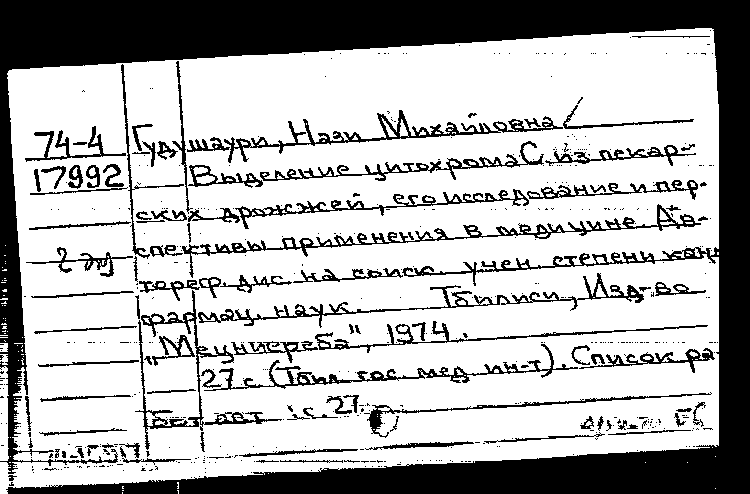 74-4 Гудушаури, Нази Михайловна
17992 Выделение цитохрома С из пекар-
ских дрожжей, его исследование и пер-
2 эк спективы применения в медицине. Ав-
тореф. дис. на соиск. учен. степени канд
фармац. наук. Тбилиси, Изд-во
„Мецниереба", 1974.
27 с. (Тбил. гос. мед. ин-т). Список ра-
бот авт.: с. 27